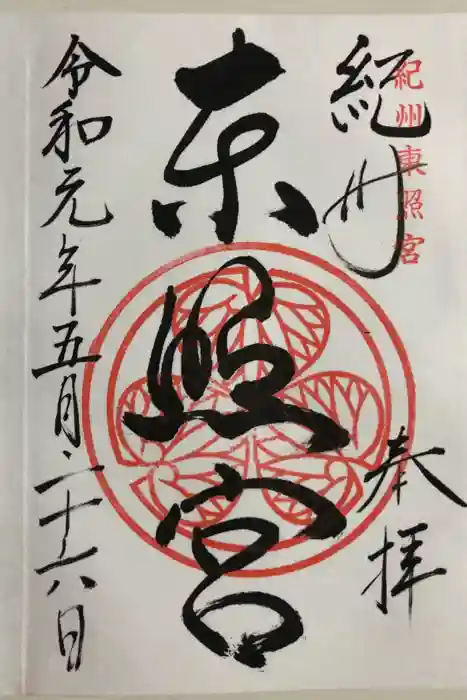 紀州
奉拝
紀州東照宮
東照宮
令和元年五月二十六日